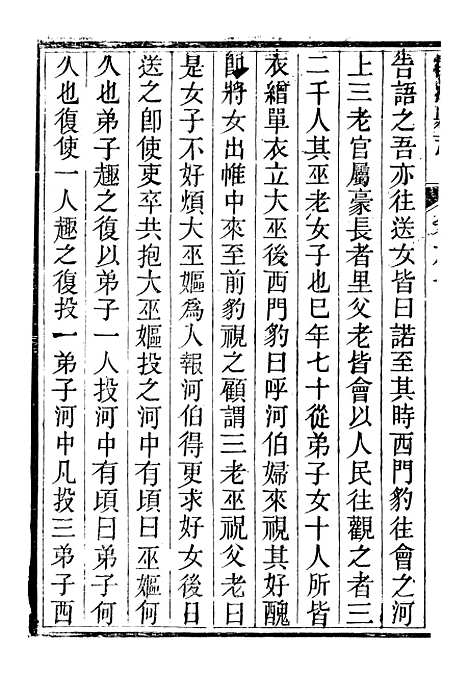 告語之吾亦往送女皆曰諾至其時西門豹往會之河
上三老官屬豪長者里父老皆會以人民往觀之者三
二千人其巫老女子也巳年七十從弟子女十人所皆
衣繒單衣立大巫後西門豹曰呼河伯婦來視其好醜
卽將女出帷中來至前豹視之顧謂三老巫祝父老曰
是女子不好煩大巫嫗爲人報河伯得更求好女後日
送之卽使吏卒共抱大巫嫗投之河中有頃曰巫嫗何
久也弟子趣之復以弟子一人投河中有頃曰弟子何
久也復使一人趣之復投一弟子河中凡投三弟子西